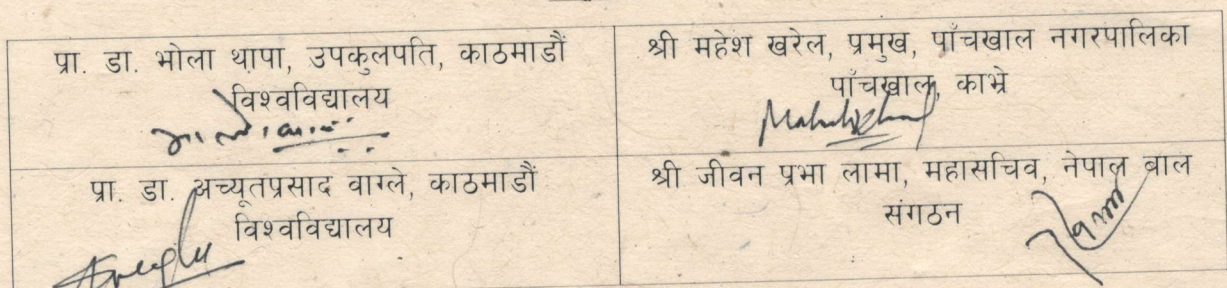 प्रा. डा. भोला थापा, उपकुलपति, काठमाडौं
विश्वविद्यालय
श्री महेश खरेल, प्रमुख, पाँचखाल नगरपालिका
पाँचखाल, काभ्रे
प्रा. डा. अच्यूतप्रसाद वाग्ले, काठमाडौं
विश्वविद्यालय
श्री जीवन प्रभा लामा, महासचिव, नेपाल बाल
संगठन